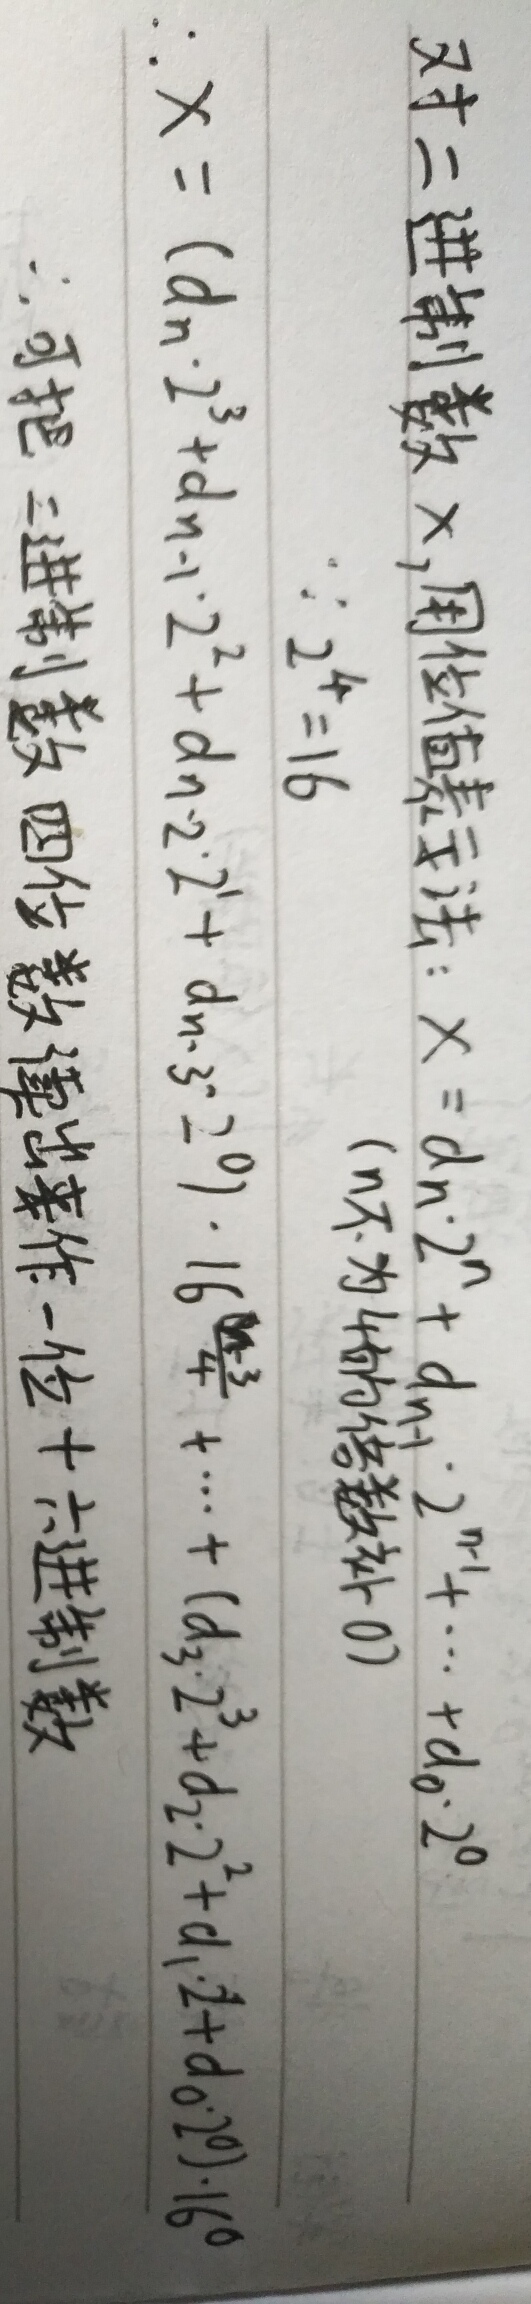 对二进制数 x, 用位值表示法: x = dₙ·2ⁿ + dₙ₋₁·2ⁿ⁻¹ + ... + d₀·2⁰
(n不为4的倍数补0)
∵ 2⁴=16
∴ x = (dₙ·2³+dₙ₋₁·2²+dₙ₋₂·2¹+dₙ₋₃·2⁰)·16^((n-3)/4) + ... + (d₃·2³+d₂·2²+d₁·2+d₀·2⁰)·16⁰
∴ 可把二进制数四位数读出来作一位十六进制数